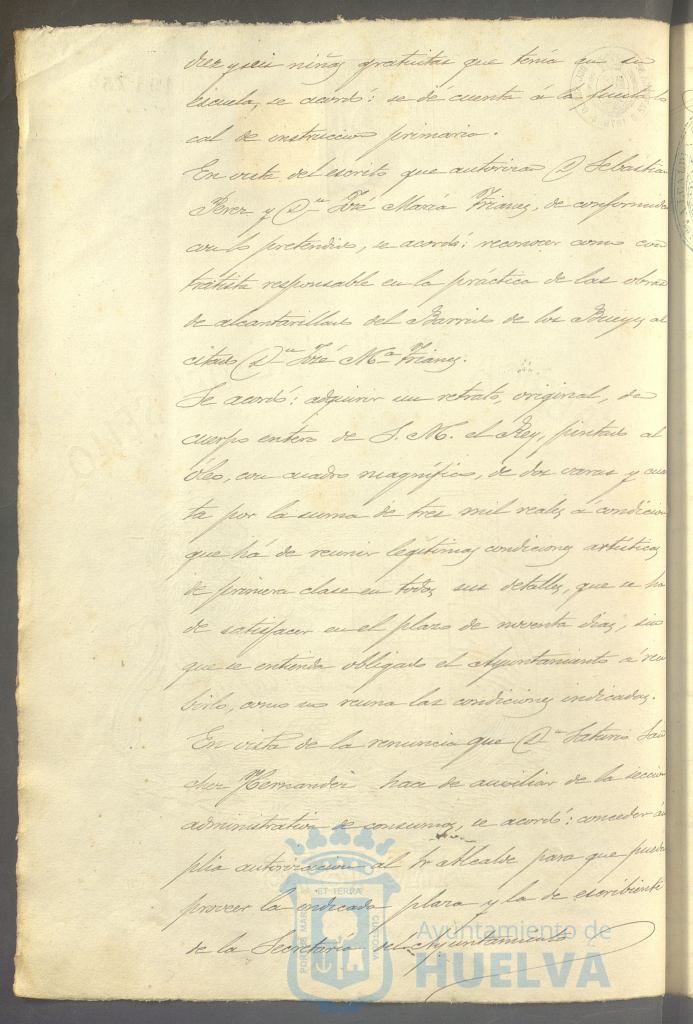 diez y seis niñas gratuitas que tenía en su
escuela, se acordó: se dé cuenta á la Junta lo
cal de instruccion primaria.
En vista del escrito que autorizan Dn Sebastian
Perez y Dn José María Frianes, de conformidad
con lo pretendido, se acordó: reconocer como con
tratista responsable en la práctica de las obras
de alcantarillado del Barrio de los Bueyes al
citado Dn José Mª Frianes.
Se acordó: adquirir un retrato, original, de
cuerpo entero de S. M. el Rey, pintado al
óleo, con cuadro magnífico, de dos varas y cuar
ta por la suma de tres mil reales á condicion
que há de reunir legítimas condiciones artísticas
de primera clase en todos sus detalles, que se ha
de satisfacer en el plazo de noventa dias, sin
que se entienda obligado el Ayuntamiento á reci
birlo, como no reuna las condiciones indicadas.
En vista de la renuncia que Dn Saturio San
chez Hernandez hace de auxiliar de la seccion
administrativa de consumos, se acordó: conceder ám
plia autorizacion al Sr Alcalde para que pueda
proveer la indicada plaza y la de escribiente
de la Secretaría del Ayuntamiento
PORTUS MARIS
ET TERRÆ
CUSTODIA
Ayuntamiento de
HUELVA